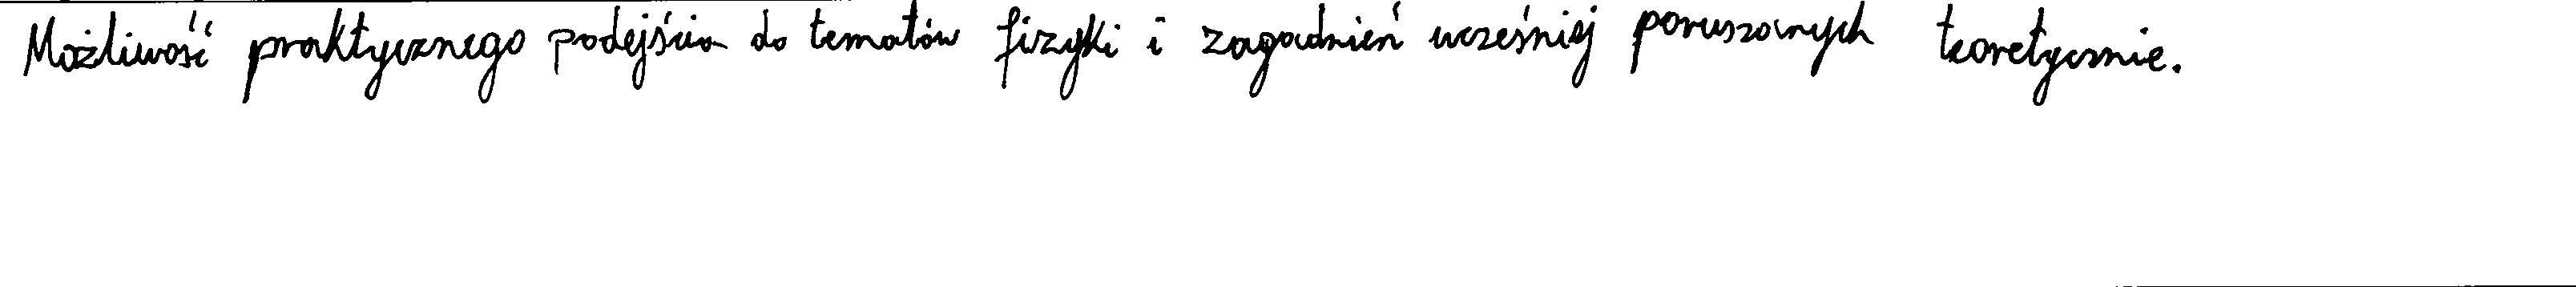 Możliwość praktycznego podejścia do tematów fizyki i zagadnień wcześniej poruszanych teoretycznie.